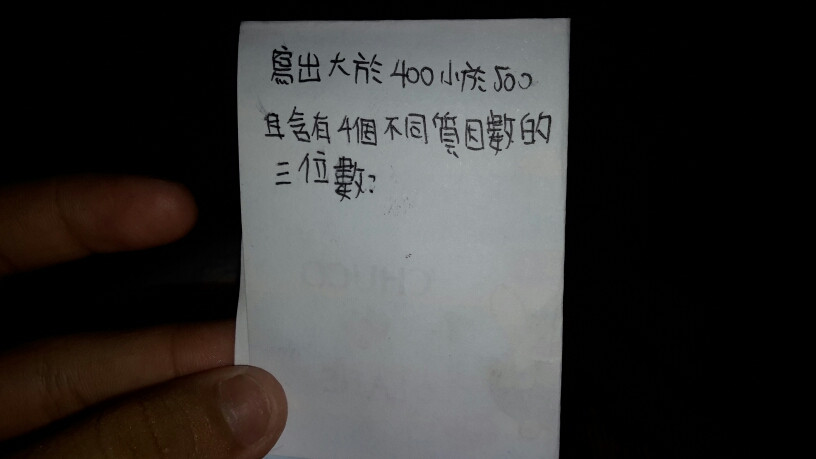 寫出大於400小於500
且含有4個不同質因數的
三位數: